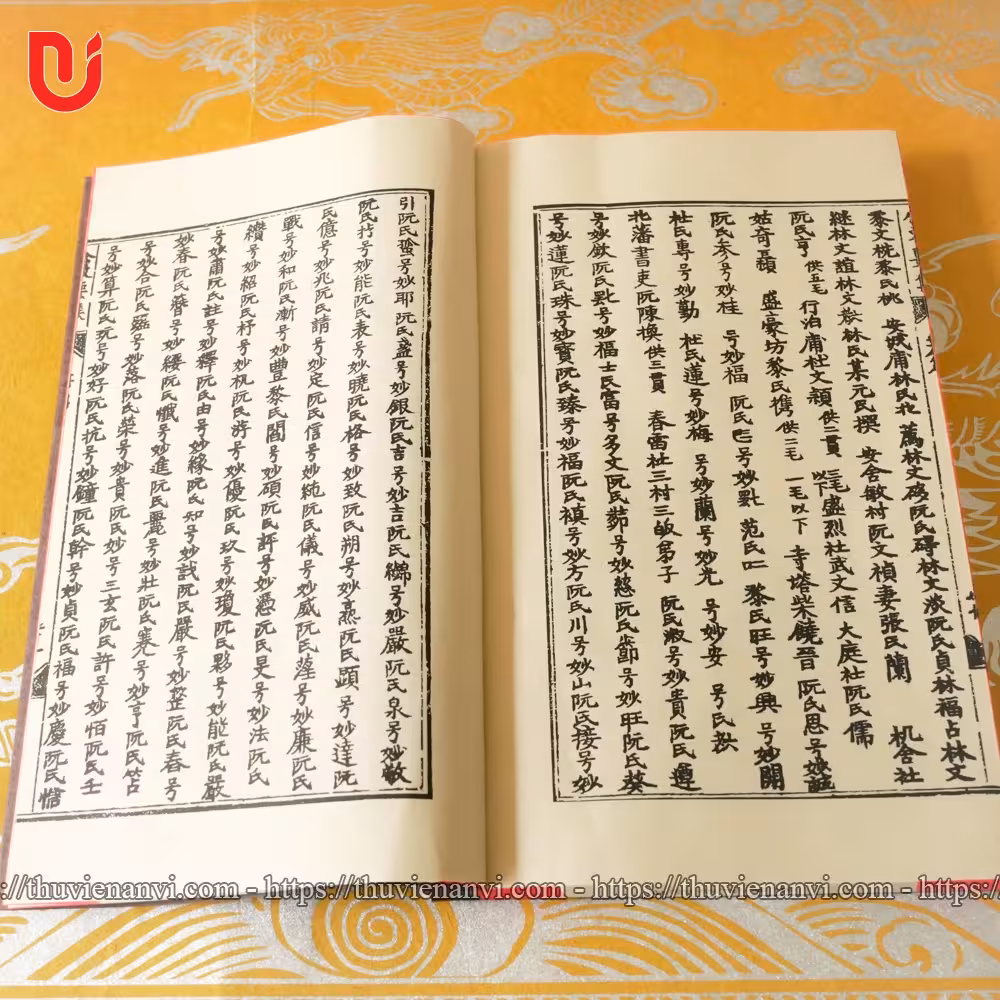 黎文桄黎氏桃 安娍甫林氏北 林文磅阮氏碍林文淡阮氏貞林福占林文
継林文誼林文敬林氏某元民撰 安舍敏村阮文禎妻張氏蘭 机舍社
阮氏亨 供五毛 行泊甫杜文頴 供三貫 三毛以下 盛烈社武文信 大庭社阮氏儒
姑奇顕 盛豪坊黎氏攜供三毛 一毛以下 寺塔柴饒晉 阮氏恩号妙誠
阮氏参号妙桂 号妙福 阮氏 号妙點 范氏 黎氏旺号妙興 号妙開
杜氏專号妙勤 杜氏蓮号妙梅 号妙蘭号妙光 号妙安 号氏秋
北藩書吏阮陳換供三貫 春雷社三村三皈弟子 阮氏淑号妙貴阮氏遵
号妙歛阮氏點号妙福士氏富号多文阮氏茹号妙慈阮氏節号妙旺阮氏葵
号妙蓮阮氏珠号妙寶阮氏臻号妙福阮氏禛号妙方阮氏川号妙山阮氏接号妙
引阮氏蛮号妙耶 阮氏盞号妙銀阮氏吉号妙吉阮氏綿号妙嚴阮氏泉号妙敏
阮氏持号妙能阮氏表号妙曉阮氏格号妙致阮氏朔号妙燕阮氏顕号妙達阮
氏億号妙兆阮氏請号妙定阮氏信号妙統阮氏儀号妙威阮氏蓙号妙廉阮氏
戰号妙和阮氏漸号妙豊黎氏閻号妙碩阮氏評号妙憑阮氏旻号妙法阮氏
纘号妙紹阮氏杼号妙机阮氏游号妙優阮氏玖号妙瓊阮氏夥号妙能阮氏嚴
号妙肅阮氏註号妙繹阮氏由号妙緣阮氏知号妙戠阮氏嚴号妙整阮氏春号
妙春阮氏養号妙綏阮氏懺号妙進阮氏麗号妙壯阮氏寒号妙亨阮氏笘
号妙合阮氏 号妙落阮氏荣号妙貴阮氏妙号三玄阮氏許号妙怕阮氏壬
号妙算阮氏玩号妙好阮氏抗号妙鐘阮氏幹号妙貞阮氏福号妙慶阮氏憺
://thuvienanvi.com - https://thuvienanvi.com - https://thuvienanvi.com - https://t